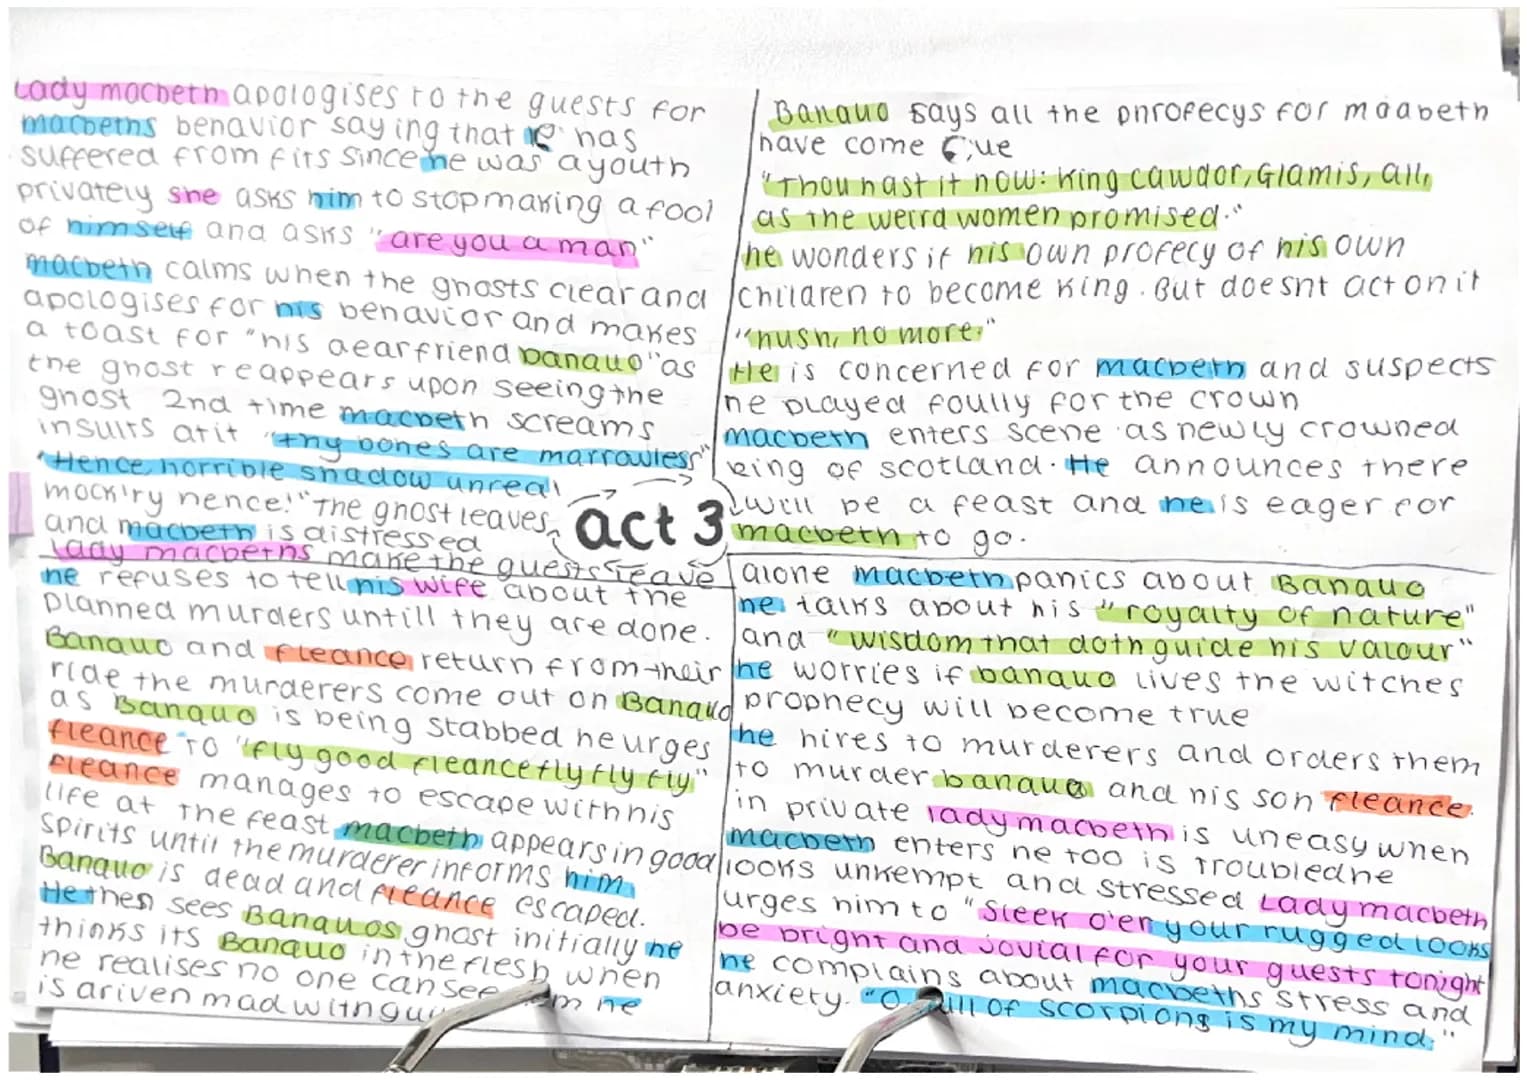 Lady macbeth apologises to the guests for
macbeths behavior saying that he has
suffered from fits since he was a youth
privately she asks him to stop making a fool
of himself and asks "are you a man"
macbeth calms when the ghosts clear and
apologises for his behavior and makes
a toast for "his dear friend banquo" as
the ghost reappears upon seeing the
ghost 2nd time macbeth screams
insults at it "thy bones are marrowless"
"Hence horrible shadow unreal
mock'ry hence!" The ghost leaves
and macbeth is distressed
Lady macbeths make the guests leave
act 3
Banquo says all the phrofecys for macbeth
have come
"Thou hast it now: King cawdor, Glamis, all,
as the weird women promised."
he wonders if his own profecy of his own
children to become king. But doesnt act on it
"hush, no more."
He is concerned for macbeth and suspects
he played foully for the crown
macbeth enters scene as newly crowned
king of scotland. He announces there
will be a feast and he is eager for
macbeth to go.
he refuses to tell his wife about the
planned murders untill they are done.
Banquo and fleance return from their
ride the murderers come out on Banquo
as Banquo is being stabbed he urges
fleance to "fly good fleance fly fly fly"
fleance manages to escape with his
life at the feast macbeth appears in good
spirits until the murderer informs him
Banquo is dead and fleance escaped.
He then sees Banquos ghost initially he
thinks its Banquo in the flesh when
he realises no one can see he
is driven mad with
alone macbeth panics about Banquo
he talks about his "royalty of nature"
and "wisdom that doth guide his valour"
he worries if banquo lives the witches
prophecy will become true
he hires to murderers and orders them
to murder banquo and his son fleance.
in private lady macbeth is uneasy when
macbeth enters he too is troubled he
looks unkempt and stressed Lady macbeth
urges him to "sleek o'er your rugged looks
be bright and jovial for your guests tonight
he complains about macbeths stress and
anxiety. "O of scorpions is my mind."